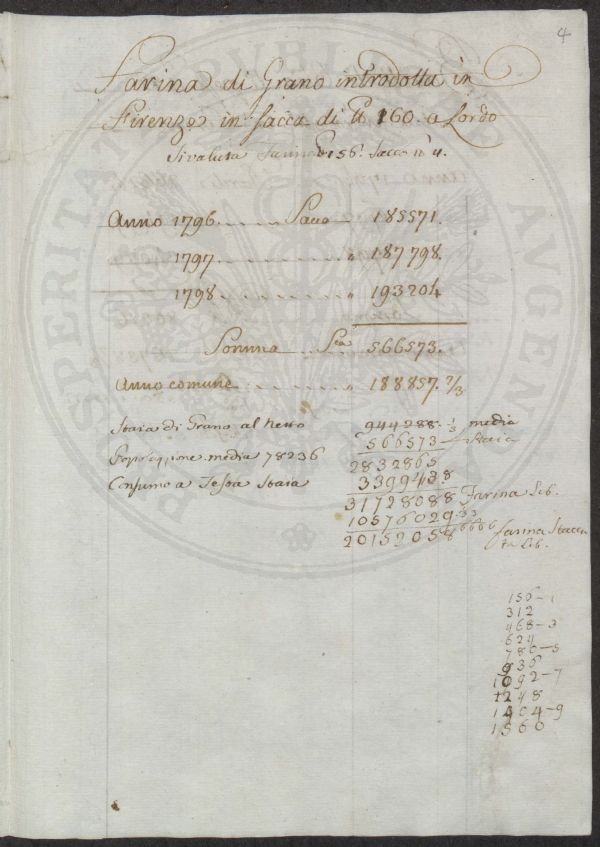 4
Farina di Grano introdotta in
Firenze in sacca di ℔ 160. a Lordo
Si valuta Farina ℔ 156. Sacca n° 4.
Anno 1796 ........ Sacca 185571.
1797 ............ " 187798.
1798 ............ " 193204
Somma .. Sca 566573.
Anno comune ........ " 188857. 2/3
Staia di Grano al Netto 944288. 1/3 media
566573 — Staia
Popolazione media 78236 2832865
Consumo a Testa Staia 3399438
31728088 Farina Lib.
10576029.33
20152058 6666 farina Stacca
ta Lib.
156 — 1
312
468 — 3
624
780 — 5
936
1092 — 7
1248
1404 — 9
1560